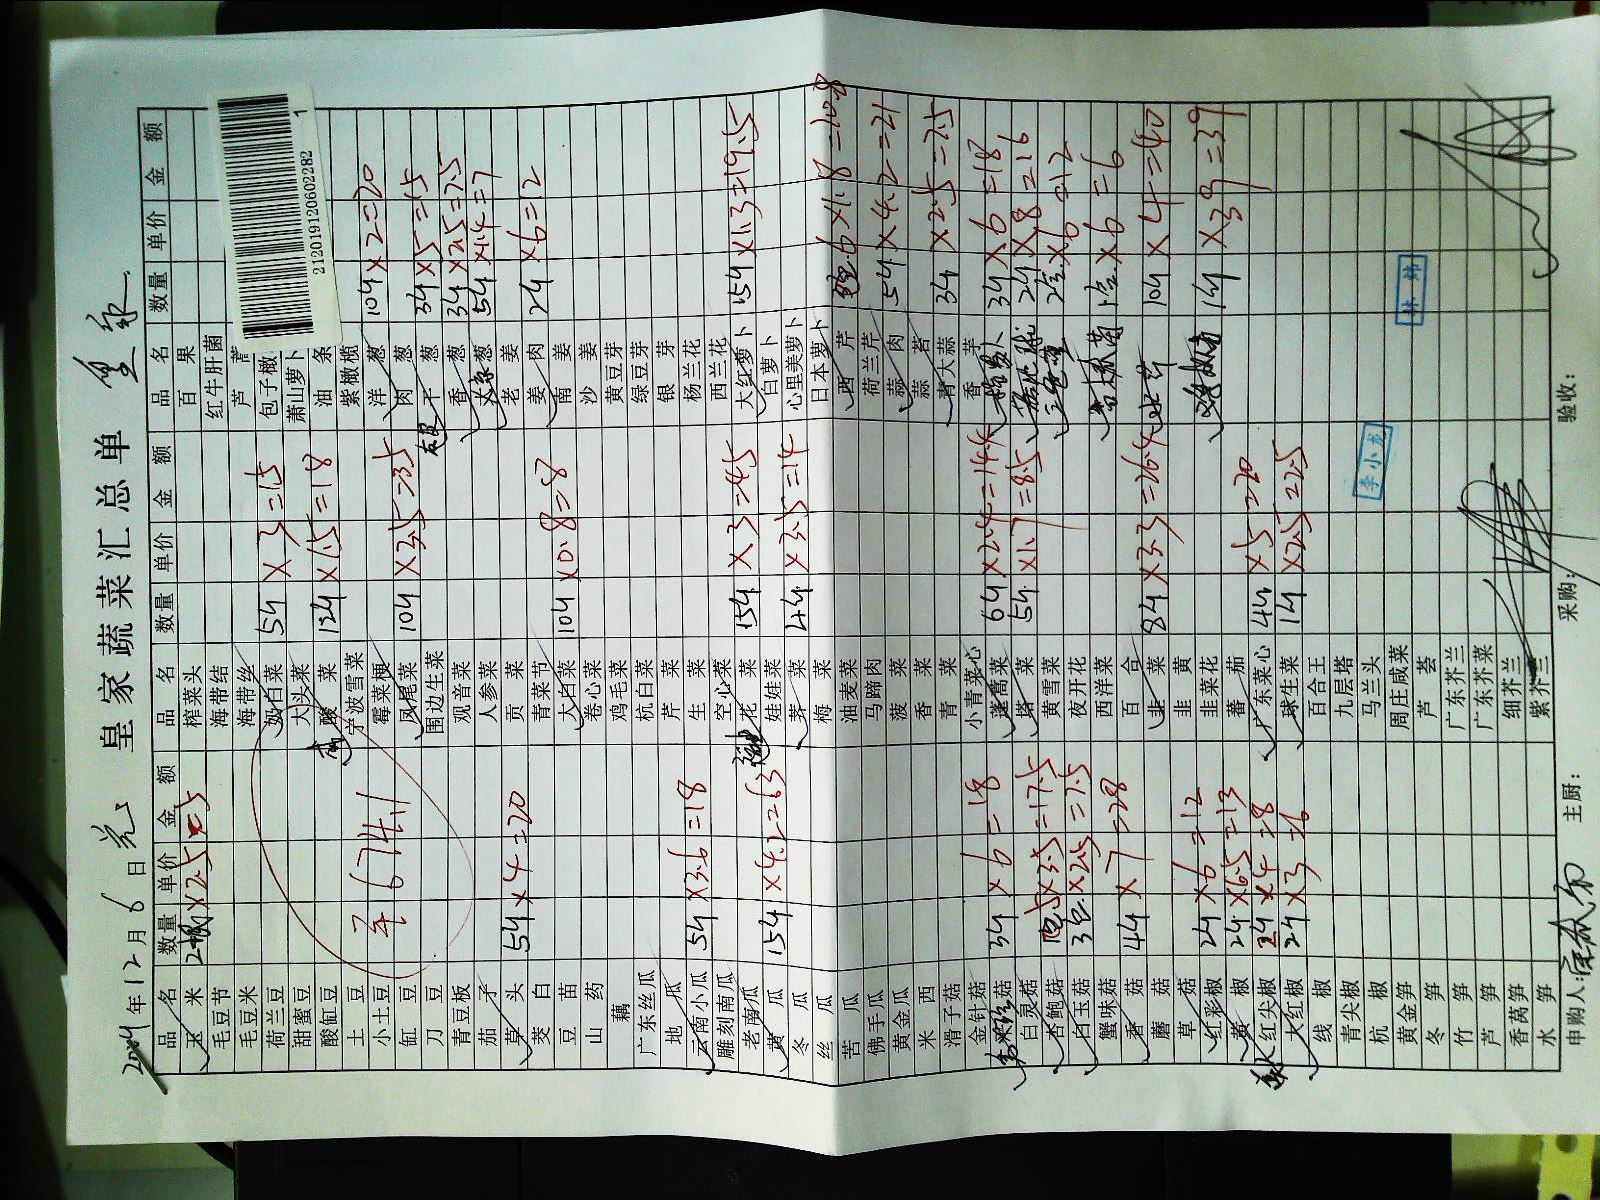 2019年12月6日 皇家蔬菜汇总单
品名 数量 单价 金额 品名 数量 单价 金额 品名 数量 单价 金额
玉米 ×2.5=5 榨菜头 百果
毛豆节 海带结 红牛肝菌
毛豆米 海带丝 芦荟
荷兰豆 奶白菜 5斤×3=15 包子橄
甜蜜豆 大头菜 萧山萝卜
酸缸豆 酸菜 12斤×1.5=18 油条
土豆 宁波雪菜 紫橄榄
小土豆 霉菜梗 洋葱 10斤×2=20
缸豆 凤尾菜 10斤×3.5=35 肉葱
刀豆 围边生菜 干葱 3斤×5=15
青豆板 观音菜 香葱 3斤×2.5=7.5
茄子 人参菜 大京葱 5斤×1.4=7
草头 5斤×4=20 贡菜 老姜
茭白 青菜节 姜肉 2斤×6=12
豆苗 大白菜 10斤×0.8=8 南姜
山药 卷心菜 沙姜
藕 鸡毛菜 黄豆芽
广东丝瓜 杭白菜 绿豆芽
地瓜 芹菜 银芽
云南小瓜 5斤×3.6=18 生菜 杨兰花
雕刻南瓜 空心菜 西兰花
老南瓜 花菜 15斤×3=45 大红萝卜 15斤×1.3=19.5
黄瓜 15斤×4.2=63 娃娃菜 白萝卜
冬瓜 荠菜 4斤×3.5=14 心里美萝卜
丝瓜 梅菜 日本萝卜
苦瓜 油麦菜 西芹 6×1.8=10.8
佛手瓜 马蹄肉 荷兰芹
黄金瓜 菠菜 蒜肉 5斤×4.2=21
米西 香菜 蒜苔
滑子菇 青菜 青大蒜 3斤×2.5=7.5
金针菇 小青菜心 香芋
3斤×6=18 蓬蒿菜 6斤×2.4=14.4 3斤×6=18
白灵菇 塔菜 5斤×1.7=8.5 2斤×8=16
杏鲍菇 5×3.5=17.5 黄雪菜 ×6=12
白玉菇 3包×2.5=7.5 夜开花
蟹味菇 西洋菜 ×6=6
香菇 4斤×7=28 百合
蘑菇 韭菜 8斤×3.3=26.4 10斤×4=40
草菇 韭黄
红彩椒 2斤×6=12 韭菜花 1斤×39=39
黄椒 2斤×6.5=13 蕃茄
红尖椒 2斤×4=8 广东菜心 4斤×5=20
大红椒 2斤×3=6 球生菜 1斤×2.5=2.5
线椒 百合王
青尖椒 九层塔
杭椒 马兰头
黄金笋 周庄咸菜
冬笋 芦荟
竹笋 广东芥兰
芦笋 广东芥菜
香莴笋 细芥兰
水笋 紫芥兰
674.1
申购人: 主厨: 采购: 验收:
李小龙
林炜
212019120602282
1